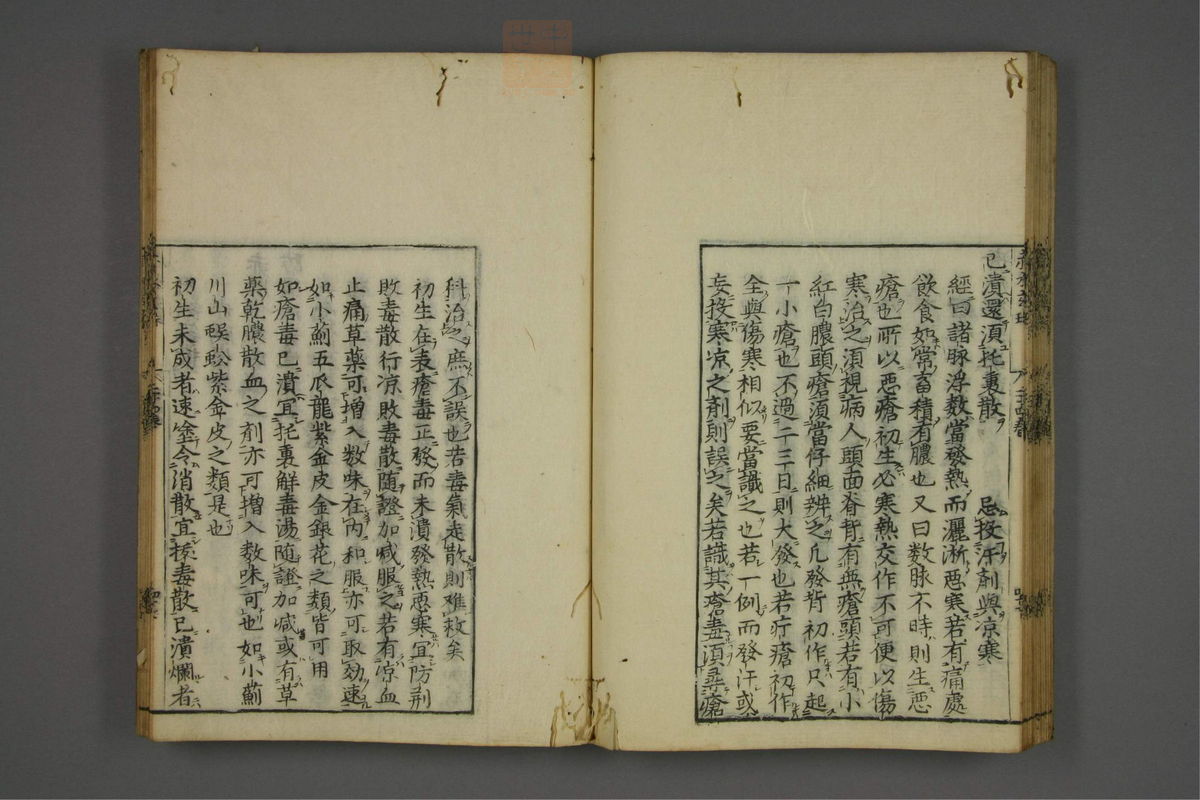 已潰還須托裏散　忌投汗劑與凉寒
經曰諸脉浮数當發熱而灑淅惡寒若有痛處
飲食如常畜積有膿也又曰数脉不時則生惡
瘡也所以惡瘡初生必寒熱交作不可便以傷
寒治之須視病人頭面脊背有無瘡頭若有小
紅白膿頭瘡須當仔細辨之凡發背初作只起
一小瘡也不過二三日則大發也若疔瘡初作
全與傷寒相似要當識之也若一例而發汗或
妄投寒凉之劑則誤之矣若識其瘡毒須尋瘡
科治之庶不誤也若毒氣走散則难救矣
初生在表瘡毒正發而未潰發熱惡寒宜防荆
敗毒散行凉敗毒散随證加减服之若有凉血
止痛草薬可增入数味在內和服亦可取効速
如小薊五爪龍紫金皮金銀花之類皆可用
如瘡毒已潰宜托裏觧毒湯随證加减或有草
薬乾膿散血之剤亦可增入数味可也如小薊
川山蜈蚣紫金皮之類是也
初生未成者速塗令消散宜㨗毒散已潰爛者